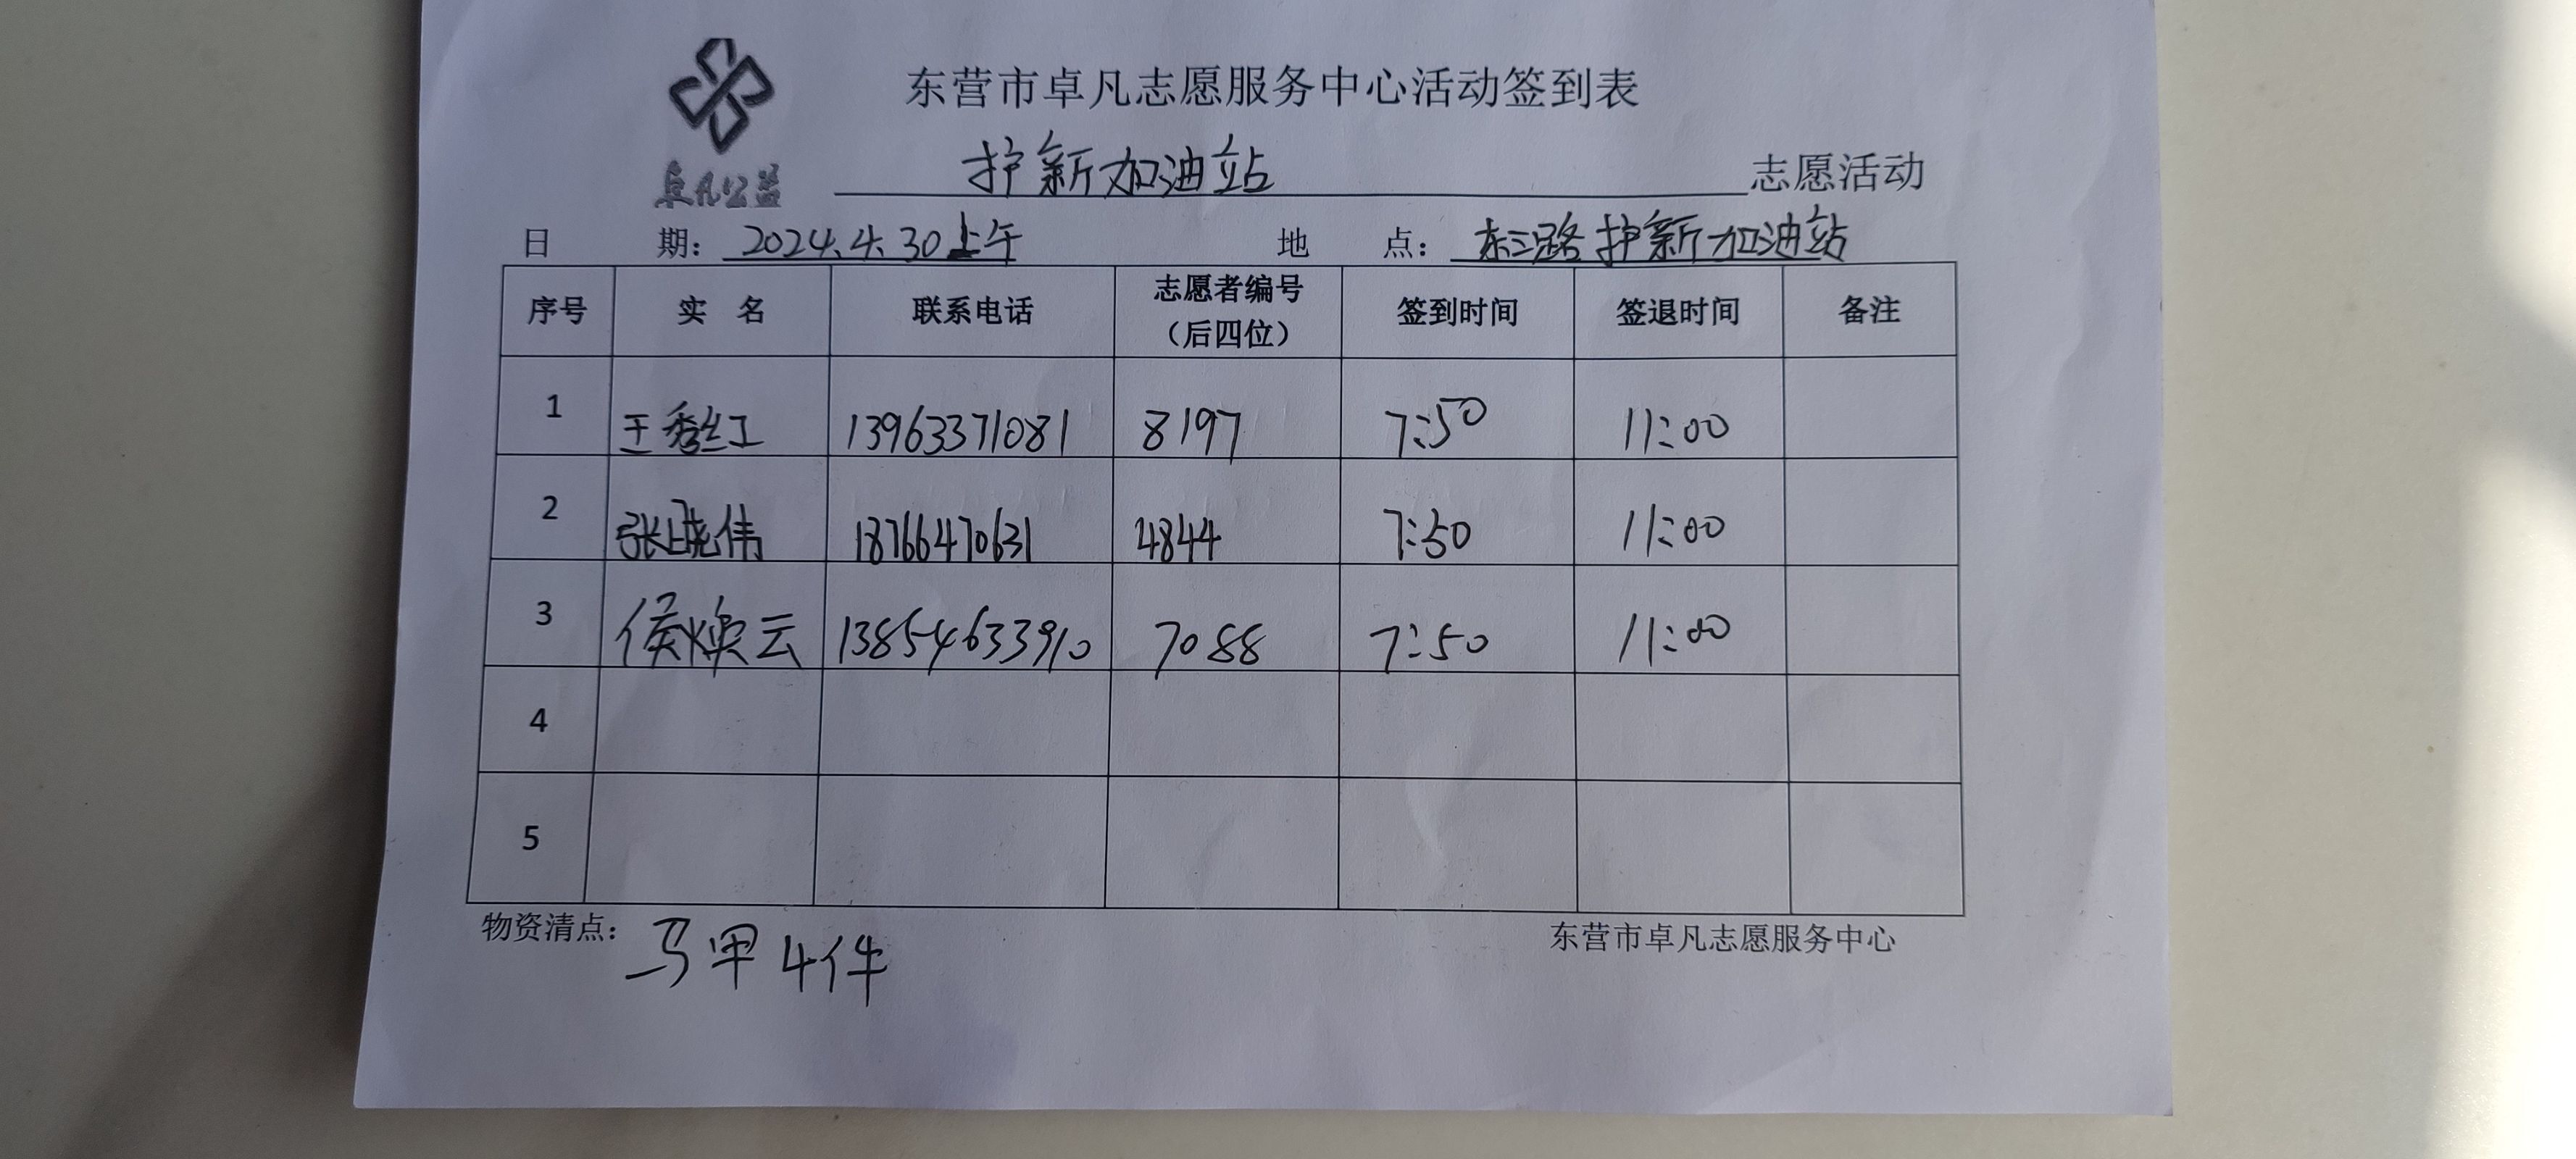 东营市卓凡志愿服务中心活动签到表
卓凡公益
护新加油站 志愿活动
日 期：2024.4.30上午 地 点：东三路护新加油站
序号 实 名 联系电话 志愿者编号（后四位） 签到时间 签退时间 备注
1 王秀红 13963371081 8197 7:50 11:00
2 张晓伟 18766470631 4844 7:50 11:00
3 侯焕云 13854633910 7088 7:50 11:00
4
5
物资清点：马甲4件
东营市卓凡志愿服务中心